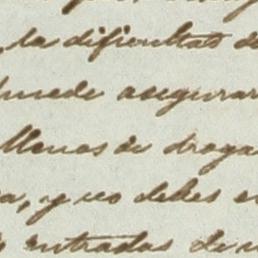 la dificultad de
puede asegurar
llenas de droga
a, y no debes e
entradas de